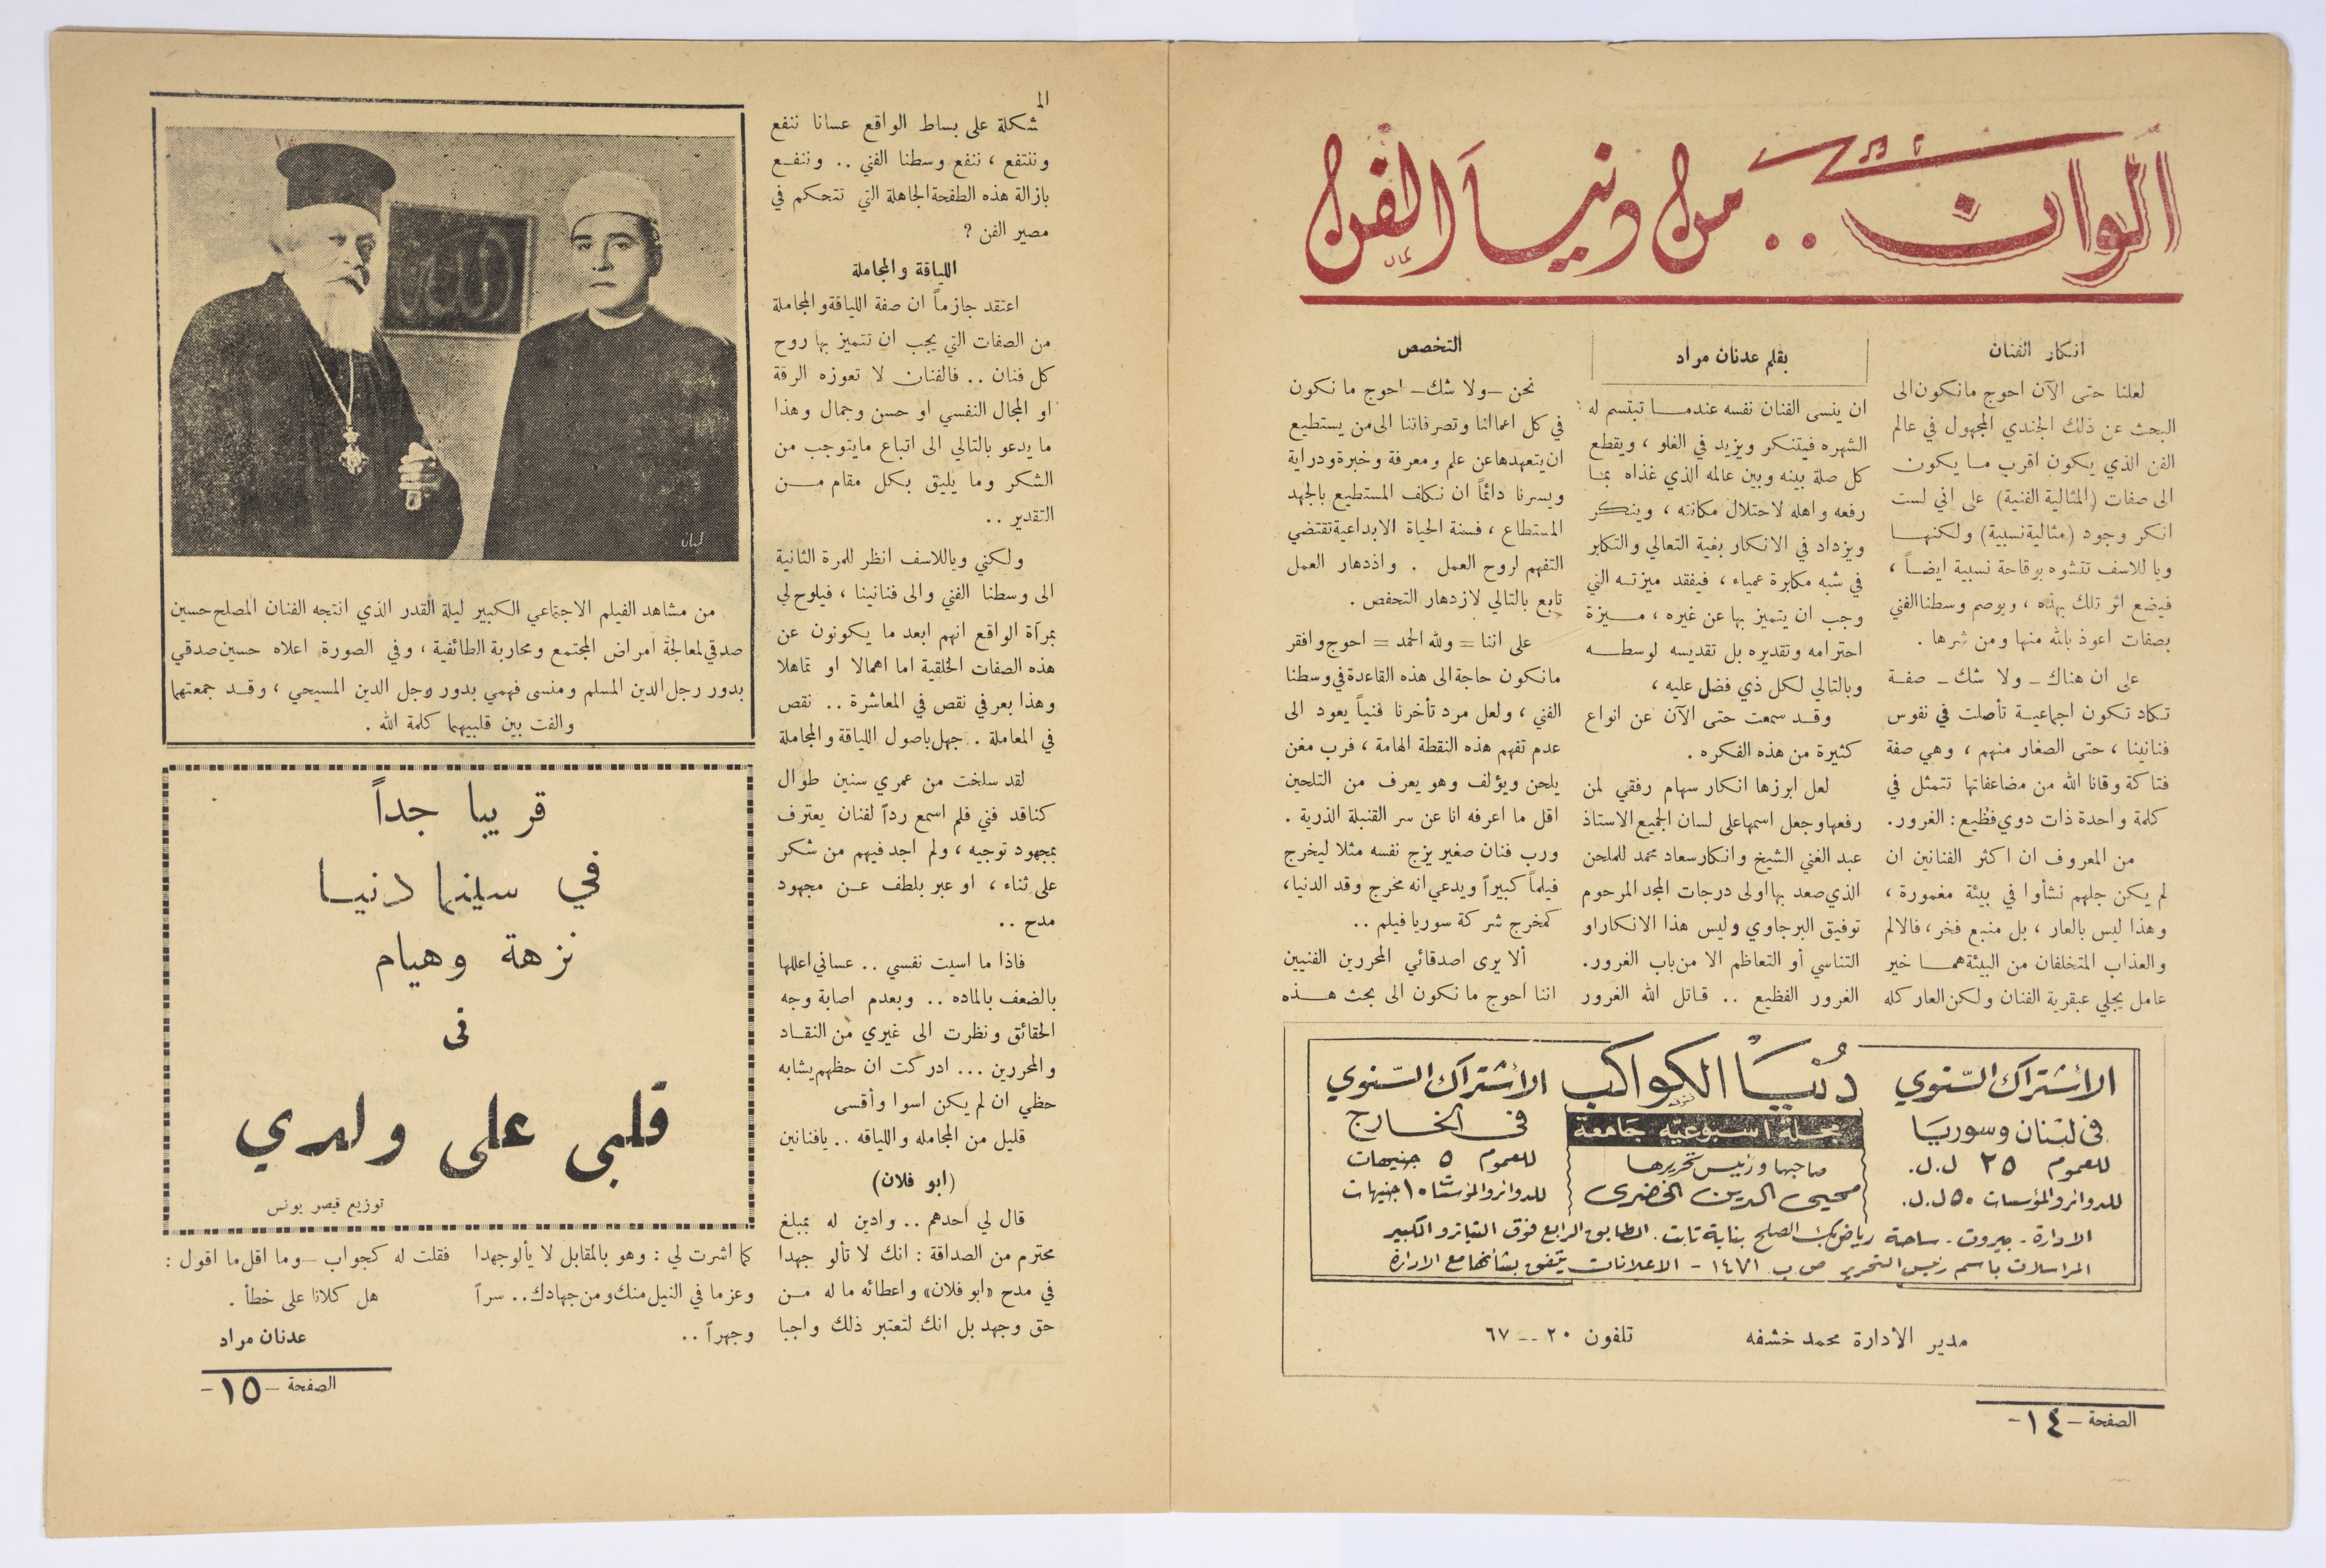 ألوان .. من دنيا الفن
انكار الفنان
لعلنا حتى الآن احوج مانكون الى
البحث عن ذلك الجندي المجهول في عالم
الفن الذي يكون اقرب ما يكون
الى صفات (المثالية الفنية) على اني لست
انكر وجود (مثالية نسبية) ولكنها
ويا للاسف تتشوه بوقاحة نسبية ايضاً ،
فيضع اثر تلك بهذه ، ويوصم وسطنا الفني
بصفات اعوذ بالله منها ومن شرها .
على ان هناك – ولا شك – صفة
تكاد تكون اجماعية تأصلت في نفوس
فنانينا ، حتى الصغار منهم ، وهي صفة
فتاكة وقانا الله من مضاعفاتها تتمثل في
كلمة واحدة ذات دوي فظيع : الغرور.
من المعروف ان اكثر الفنانين ان
لم يكن جلهم نشأوا في بيئة مغمورة ،
وهذا ليس بالعار ، بل منبع فخر ، فالالم
والعذاب المتخلفان من البيئة همـا خير
عامل يجلي عبقرية الفنان ولكن العار كله
بقلم عدنان مراد
ان ينسى الفنان نفسه عندمـا تبتسم له
الشهره فيتنكر ويزيد في الغلو ، ويقطع
كل صلة بينه وبين عالمه الذي غذاه بما
رفعه واهله لاحتلال مكانته ، وينكر
ويزداد في الانكار بغية التعالي والتكابر
في شبه مكابرة عمياء ، فيفقد ميزته التي
وجب ان يتميز بها عن غيره ، ميزة
احترامه وتقديره بل تقديسه لوسطه
وبالتالي لكل ذي فضل عليه ،
وقد سمعت حتى الآن عن انواع
كثيرة من هذه الفكره .
لعل ابرزها انكار سهام رفقي لمن
رفعها وجعل اسمها على لسان الجميع الاستاذ
عبد الغني الشيخ وانكار سعاد محمد للملحن
الذي صعد بها اولى درجات المجد المرحوم
توفيق البرجاوي وليس هذا الانكار او
التناسي أو التعاظم الا من باب الغرور.
الغرور الفظيع .. قاتل الله الغرور
التخصص
نحن – ولا شك – احوج ما نكون
في كل اعمالنا وتصرفاتنا الى من يستطيع
ان يتعهدها عن علم ومعرفة وخبرة ودراية
ويسرنا دائماً ان نكلف المستطيع بالجهد
المستطاع ، فسنة الحياة الابداعية تقتضي
التفهم لروح العمل . وازدهار العمل
تابع بالتالي لازدهار التحفص .
على اننا = ولله الحمد = احوج وافقر
مانكون حاجة الى هذه القاعدة في وسطنا
الفني ، ولعل مرد تأخرنا فنياً يعود الى
عدم تفهم هذه النقطة الهامة ، فرب مغن
يلحن ويؤلف وهو يعرف من التلحين
اقل ما اعرفه انا عن سر القنبلة الذرية .
ورب فنان صغير يزج نفسه مثلا ليخرج
فيلماً كبيراً ويدعي انه مخرج وقد الدنيا ،
كمخرج شركة سوريا فيلم ..
ألا يرى اصدقائي المحررين الفنيين
اننا احوج ما نكون الى بحث هذه
الأشتراك السنوي
في لبنان وسوريا
للعموم ٢٥ ل.ل.
للدوائر والمؤسسات ٥٠ ل.ل.
دنيا الكواكب
مجلة اسبوعية جامعة
صاحبها ورئيس تحريرها
محيي الدين الخضري
الأشتراك السنوي
في الخارج
للعموم ٥ جنيهات
للدوائر والمؤسسات ١٠ جنيهات
الادارة - بيروت - ساحة رياض بك الصلح بناية ثابت . الطابق الرابع فوق التياترو الكبير
المراسلات باسم رئيس التحرير ص ب ١٤٧١ - الاعلانات يتفق بشأنها مع الادارة
مدير الادارة محمد خشفه
تلفون ٢٠ -- ٦٧
الصفحة – ١٤ –
المـ
شكلة على بساط الواقع عسانا ننفع
وننتفع ، ننفع وسطنا الفني .. وننفع
بازالة هذه الطفحة الجاهلة التي تتحكم في
مصير الفن ؟
اللياقة والمجاملة
اعتقد جازماً ان صفة اللياقة والمجاملة
من الصفات التي يجب ان تتميز بها روح
كل فنان .. فالفنان لا تعوزه الرقة
او المجال النفسي او حسن وجمال وهذا
ما يدعو بالتالي الى اتباع مايتوجب من
الشكر وما يليق بكل مقام من
التقدير ..
ولكني وياللاسف انظر للمرة الثانية
الى وسطنا الفني والى فنانينا ، فيلوح لي
بمرآة الواقع انهم ابعد ما يكونون عن
هذه الصفات الخلقية اما اهمالا او تماهلا
وهذا بعرفي نقص في المعاشرة .. نقص
في المعاملة . جهل باصول اللياقة والمجاملة
لقد سلخت من عمري سنين طوال
كناقد فني فلم اسمع رداً لفنان يعترف
بمجهود توجيه ، ولم اجد فيهم من شكر
على ثناء ، او عبر بلطف عن مجهود
مدح ..
فاذا ما اسيت نفسي .. عساني اعللها
بالضعف بالماده .. وبعدم اصابة وجه
الحقائق ونظرت الى غيري من النقاد
والمحررين ... ادركت ان حظهم يشابه
حظي ان لم يكن اسوا وأقسى
قليل من المجامله واللياقه .. يافنانين
(ابو فلان)
قال لي أحدهم .. وادين له بمبلغ
محترم من الصداقة : انك لا تألو جهدا
في مدح «ابو فلان» واعطائه ما له من
حق وجهد بل انك لتعتبر ذلك واجبا
كما اشرت لي : وهو بالمقابل لا يألو جهدا
وعزما في النيل منك ومن جهادك .. سراً
وجهراً ..
فقلت له كجواب – وما اقل ما اقول :
هل كلانا على خطأ .
عدنان مراد
لبنان
من مشاهد الفيلم الاجتماعي الكبير ليلة القدر الذي انتجه الفنان المصلح حسين
صدقي لمعالجة امراض المجتمع ومحاربة الطائفية ، وفي الصورة اعلاه حسين صدقي
بدور رجل الدين المسلم ومنسى فهمي بدور رجل الدين المسيحي ، وقد جمعتهما
والفت بين قلبيهما كلمة الله .
قريبا جداً
في سينما دنيا
نزهة وهيام
في
قلبي على ولدي
توزيع قيصر يونس
الصفحة – ١٥ –